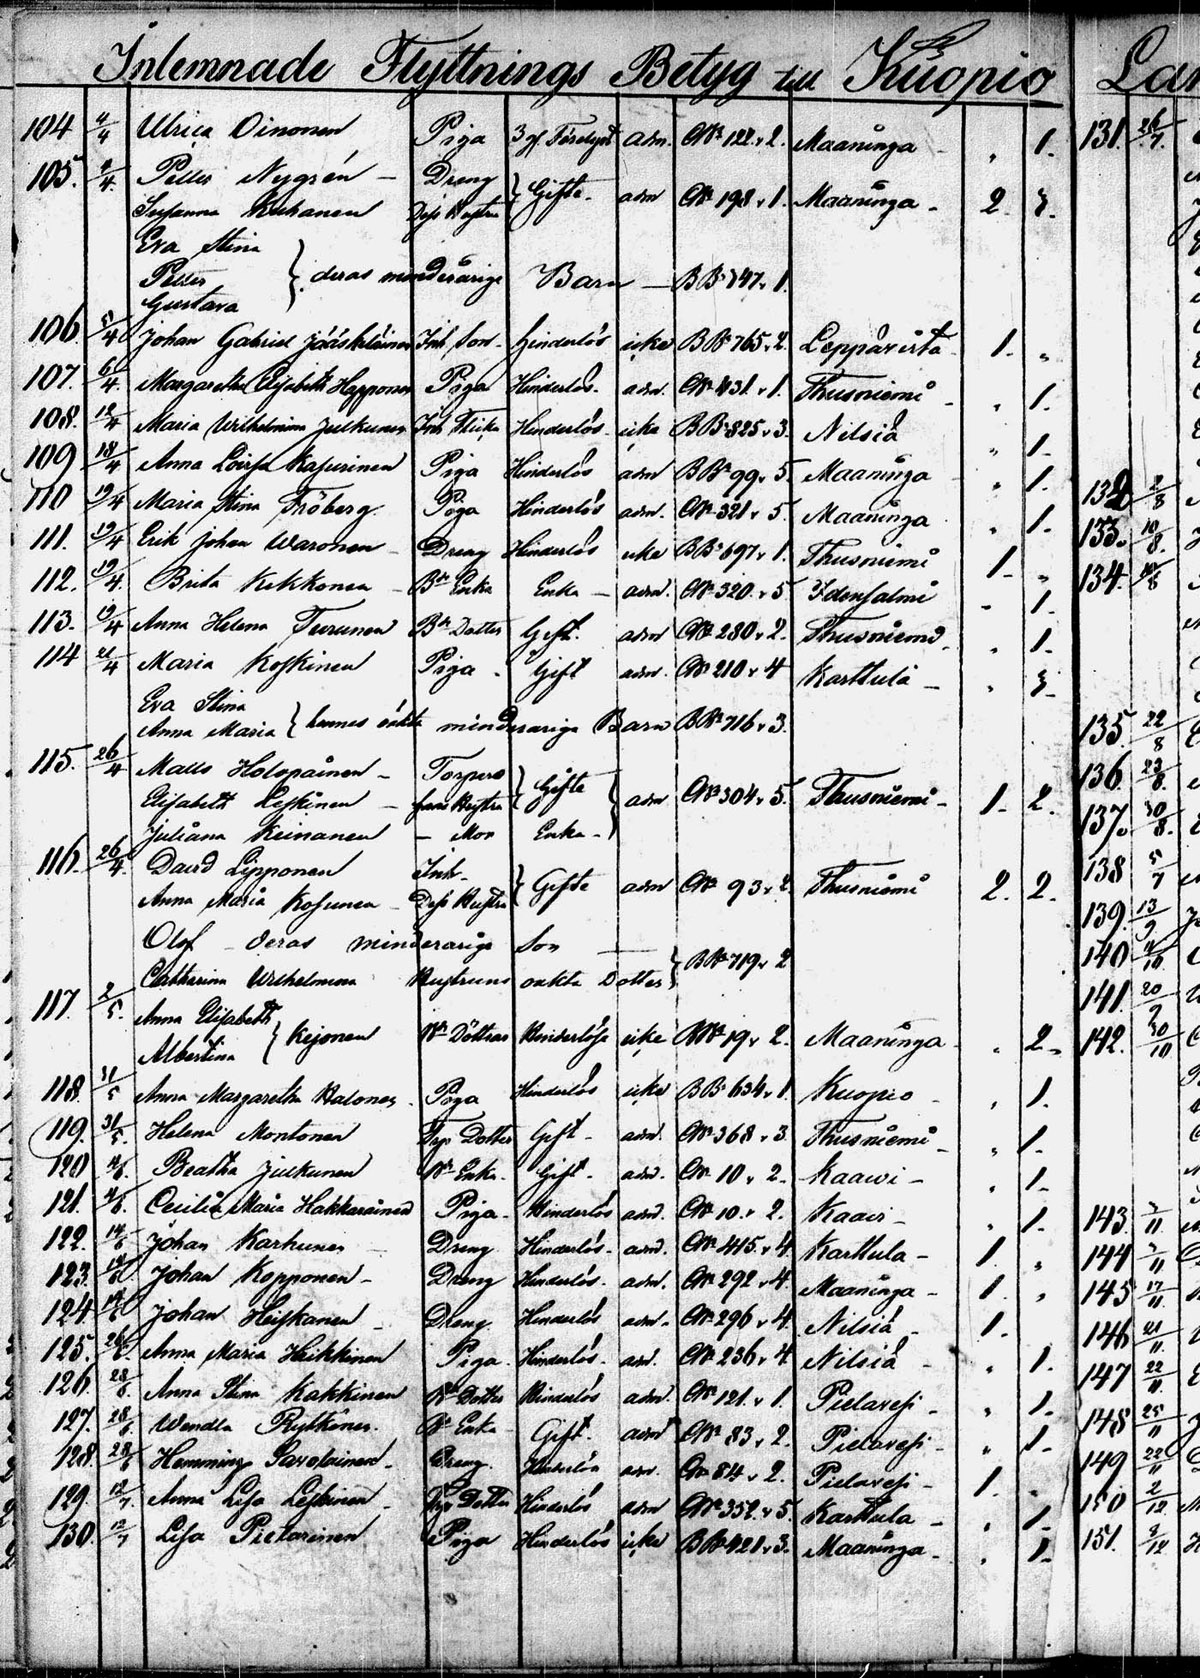 Inlemnade Flyttnings Betyg till Kuopio Lan
104 4/4 Ulrica Oinonen Piga 3 gl. adm. AN 122 v 2. Maaninga - „ 1.
105. 4/4. Petter Nygrén - Dreng
Susanna Kuhanen Dess Hustru } Gifte. adm AN 198 v 1. Maaninga - 2. 3.
Eva Stina
Petter } deras minderårige Barn — BB 747 v 1.
Gustava
106 5/4 Johan Gabriel Jääskeläinen Inh. Son - hinderlös icke BB 765 v 2. Leppävirta 1. „
107. 6/4. Margaretha Elisabeth Happonen Piga Hinderlös. adm. AN 431 v 1. Thusniemi - „ 1.
108. 12/4 Maria Wilhelmina Julkunen Inh. Flicka Hinderlös icke BB 825 v 3. Nilsiä „ 1.
109 18/4 Anna Lovisa Kasurinen Piga Hinderlös adm BB 99 v 5. Maaninga „ 1.
110 19/4 Maria Stina Fröberg Piga Hinderlös adm. AN 321 v 5. Maaninga „ 1.
111. 19/4 Erik Johan Waronen - Dreng Hinderlös icke BB 697 v 1. Thusniemi 1. „
112. 19/4. Brita Kekkonen - Bde Enka Enka — adm. AN 320 v 5 Idensalmi „ 1.
113. 19/4 Anna Helena Turunen Bde Dotter Gift. adm AN 280 v 2. Thusniemi. „ 1.
114 21/4 Maria Koskinen Piga - Gift adm. AN 210 v 4 Karttula - „ 3.
Eva Stina
Anna Maria } hennes oäkta minderåriga Barn BB 716 v 3.
115. 26/4 Matts Holopainen - Torpare
Elisabeth Leskinen - hans Hustru } Gifte } adm AN 304 v 5. Thusniemi - 1. 2.
Juliana Keinanen - Mor Enka -
116. 26/4 David Lipponen Inh-
Anna Maria Kosunen - Dess Hustru } Gifte adm AN 93 v 2 Thusniemi 2. 2.
Olof - deras minderårige Son —
Catharina Wilhelmina Hustruns oäkta Dotter } BB 719 v 2
117. 2/5. Anna Elisabeth
Albertina } Keijonen Döttrar Hinderlösa icke 19 v 2. Maaninga - „ 2.
118. 31/5 Anna Margaretha Halonen. Piga Hinderlös icke BB 634 v 1. Kuopio - „ 1.
119. 31/5. Helena Montonen Dotter Gift - adm. AN 368 v 3. Thusniemi „ 1.
120 4/6. Beatha Julkunen Enka. Gift. adm. AN 10 v 2. Kaawi - „ 1.
121. 4/6. Cecilia Maria Hakkarainen Piga - Hinderlös adm. AN 10 v 2. Kaavi - „ 1.
122. 14/6 Johan Karhunen Dreng Hinderlös. adm. AN 415 v 4 Karttula - 1. „
123. 14/6 Johan Kopponen - Dreng Hinderlös. adm. AN 292 v 4. Maaninga - 1. „
124. 14/6 Johan Heiskanen - Dreng Hinderlös adm. AN 296 v 4 Nilsiä - 1. -
125. 26/6. Anna Maria Heikkinen Piga. Hinderlös. adm. AN 236 v 4 Nilsiä - „ 1.
126. 28/6. Anna Stina Kakkinen Dotter Hinderlös adm. AN 121 v 1. Pielavesi - „ 1.
127. 28/6. Wendla Rytkönen. Enka Gift. adm AN 83 v 2. Pielavesi - „ 1.
128. 28/6 Hemming Savolainen - Dreng Hinderlös adm. AN 84 v 2. Pielavesi - 1.
129. 12/7 Anna Lisa Leskinen Dotter Hinderlös adm AN 352 v 5. Karttula - „ 1.
130. 12/7 Lisa Pietarinen Piga Hinderlös icke BB 421 v 3. Maaninga - „ 1.
131. 26/7.
132 2/8
133. 10/8.
134. 10/8
135 22/8
136. 23/8.
137. 30/8.
138 5/7
139. 13/9
140 11/10
141. 20/9
142. 30/10
143. 2/11
144 2/11
145 17/11.
146 21/11.
147 22/11.
148 25/11
149 22/11
150 2/12
151. 8/12